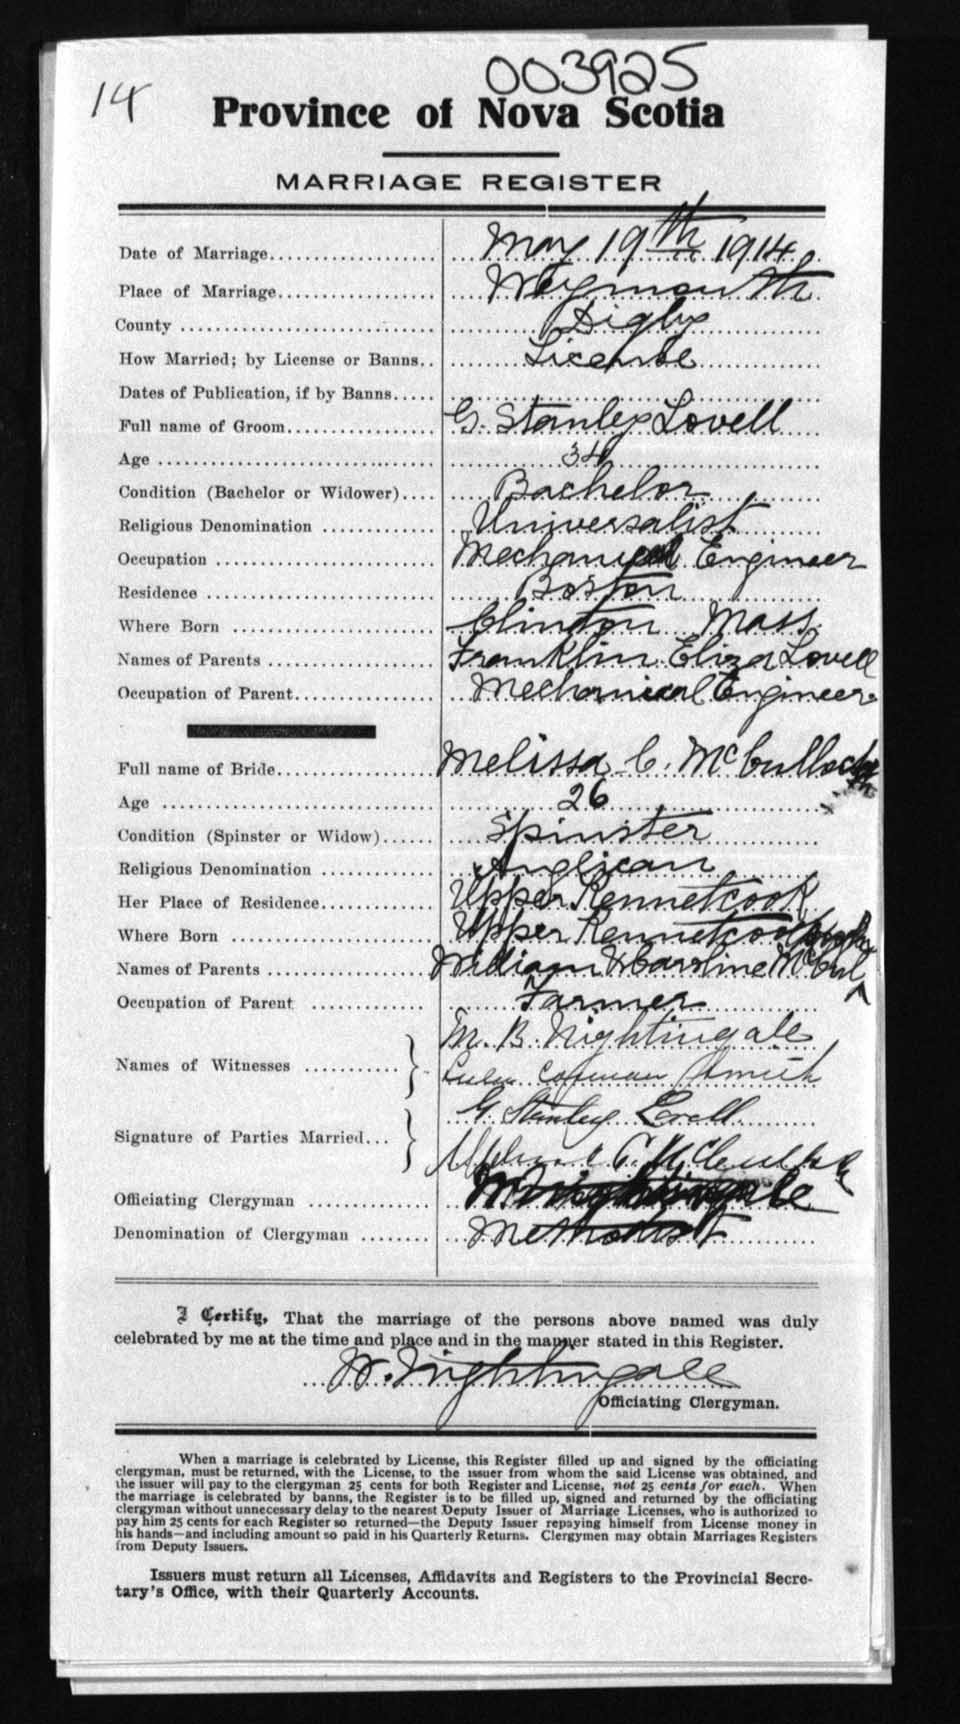 003925
14
Province of Nova Scotia
MARRIAGE REGISTER
Date of Marriage.................. May 19th 1914
Place of Marriage................. Weymouth
County ............................ Digby
How Married; by License or Banns.. License
Dates of Publication, if by Banns.....
Full name of Groom................ G. Stanley Lovell
Age ............................... 34
Condition (Bachelor or Widower).... Bachelor
Religious Denomination ............ Universalist
Occupation ........................ Mechanical Engineer
Residence ......................... Boston
Where Born ........................ Clinton Mass.
Names of Parents .................. Franklin Eliza Lovell
Occupation of Parent............... Mechanical Engineer
Full name of Bride................. Melissa C. McCulloch
Age ............................... 26
Condition (Spinster or Widow)...... Spinster
Religious Denomination ............ Anglican
Her Place of Residence............. Upper Kennetcook
Where Born ........................ Upper Kennetcook
Names of Parents .................. William & Caroline McCul^
Occupation of Parent .............. Farmer
Names of Witnesses ........... M. B. Nightingale
Smith
Signature of Parties Married... G. Stanley Lovell
C McCulloch
Officiating Clergyman ............. Nightingale
Denomination of Clergyman ........ Methodist
I Certify, That the marriage of the persons above named was duly
celebrated by me at the time and place and in the manner stated in this Register.
W. Nightingale
Officiating Clergyman.
When a marriage is celebrated by License, this Register filled up and signed by the officiating
clergyman, must be returned, with the License, to the issuer from whom the said License was obtained, and
the issuer will pay to the clergyman 25 cents for both Register and License, not 25 cents for each. When
the marriage is celebrated by banns, the Register is to be filled up, signed and returned by the officiating
clergyman without unnecessary delay to the nearest Deputy Issuer of Marriage Licenses, who is authorized to
pay him 25 cents for each Register so returned—the Deputy Issuer repaying himself from License money in
his hands—and including amount so paid in his Quarterly Returns. Clergymen may obtain Marriages Registers
from Deputy Issuers.
Issuers must return all Licenses, Affidavits and Registers to the Provincial Secre-
tary's Office, with their Quarterly Accounts.